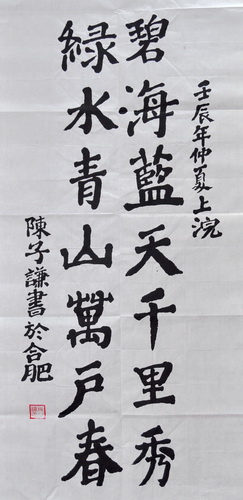 壬辰年仲夏上浣
碧海藍天千里秀
綠水青山萬戶春
陳子謙書於合肥